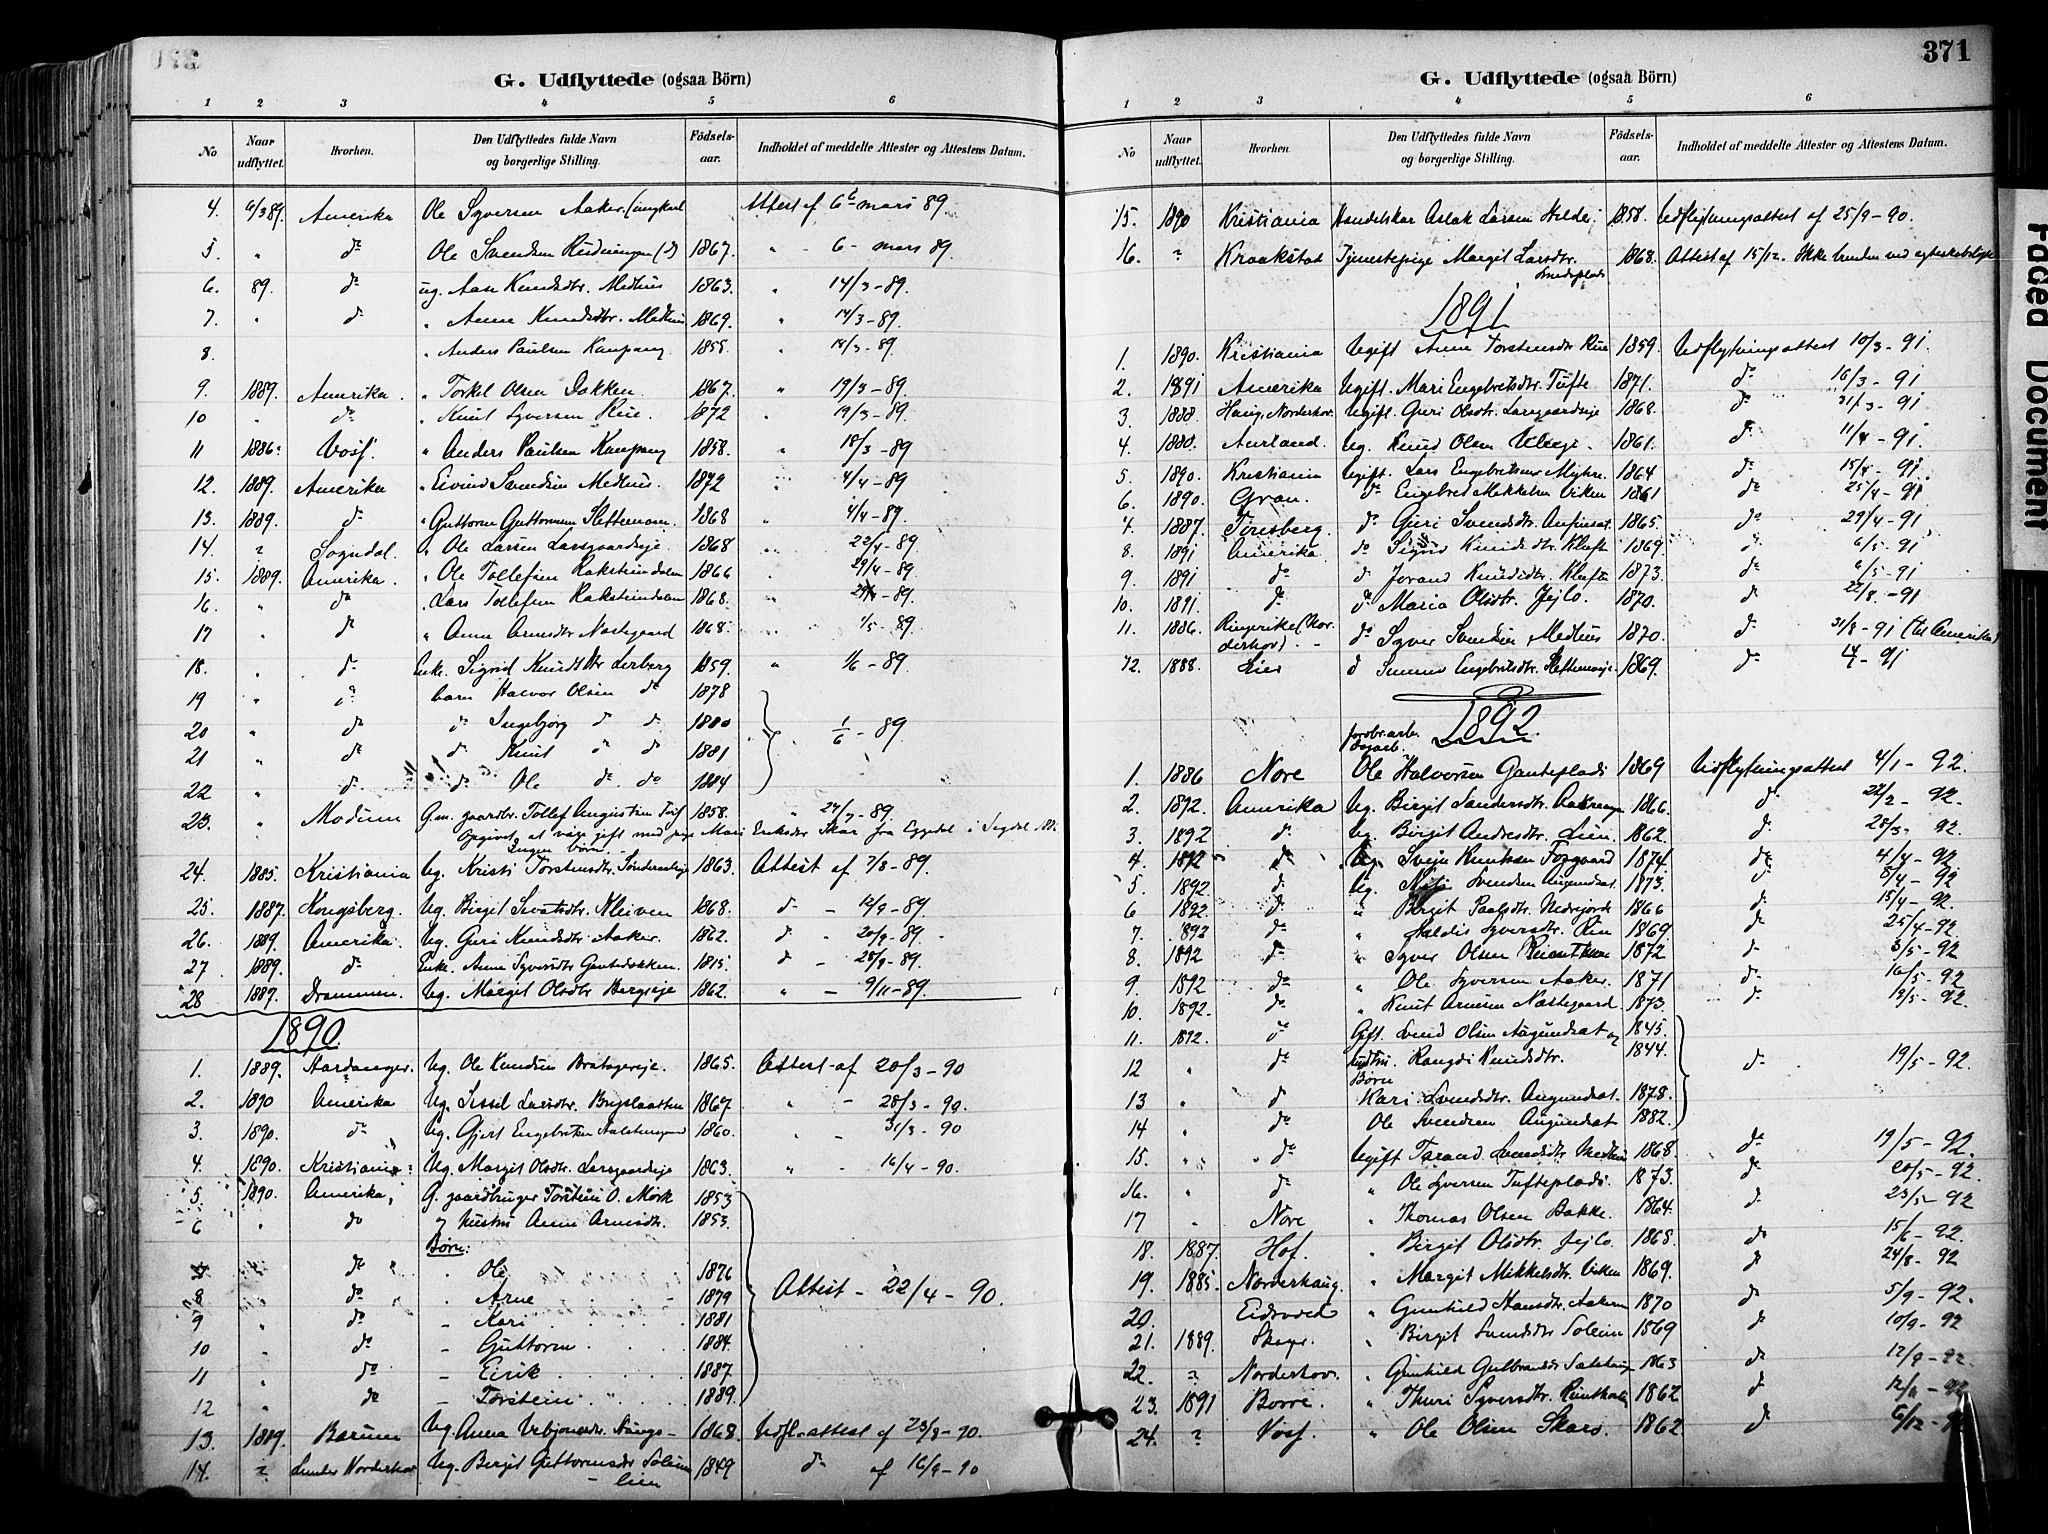 G. Udflyttede (ogsaa Börn)
1 2 3 4 5 6
No Naar udflyttet. Hvorhen. Den Udflyttedes fulde Navn og borgerlige Stilling. Födsels-aar. Indholdet af meddelte Attester og Attestens Datum.
4. 6/3 89. Amerika Ole Syversen Aaker (ungkarl Attest af 6t mars 89
5. " do Ole Svendsen Rudningen (do) 1867. " - 6 - mars 89
6. 89. do ug. Aase Knudsdtr. Medhus 1863. " 14/3 - 89.
7. " do " Anne Knudsdtr. Medhus 1869. " 14/3 - 89.
8. " Anders Paulsen Kaupang 1858. 18/3 - 89.
9. 1889. Amerika. " Torkel Olsen Dokken 1867. " 19/3 - 89.
10 " do " Knut Syversen Rue. 1872 " 19/3 - 89.
11 1886. Voss. " Anders Paulsen Kaupang 1858. " 18/3 - 89
12. 1889. Amerika " Eivind Svendsen Medhus. 1872 " 4/4 - 89
13. 1889. do " Guttorm Guttormsen Slettemoen. 1868 " 4/4 - 89.
14. " Sogndal. " Ole Larsen Larsgaardseje. 1868 " 22/4 - 89
15. 1889. Amerika. " Ole Tollefsen 1866 " 29/4 - 89.
16 " do " Lars Tollefsen 1868. " - 89.
17 " do " Anne Arnesdtr Nostegaard 1868. " 1/5 - 89
18. " do Enke. Sigrid Knudsdtr Lerberg 1859. " 1/6 - 89.
19 " do barn Halvor Olsen do 1878
20 " do do Ingebjörg do do 1880 1/6 - 89
21 " do do Knut do do 1881
22 " do do Ole do do 1884
23. " Modum G.m. gaardbr. Tollef Augustin 1858. " 24/7 - 89.
Opgivet at være gift med pige Mari Eriksdtr Skar fra Eggedal i Sigdal
Ingen börn.
24. 1885. Kristiania Ug. Kristi Torstensdtr. 1863. Attest af 7/8 - 89.
25. 1887. Kongsberg. Ug. Birgit Sevatsdtr. Kleiven 1868. do - 12/9 - 89
26. 1889. Amerika. Ug. Guri Knudsdtr. Aaker. 1862. do " 20/9 - 89
27. 1889. do Enke. Anne Syversdtr 1815. do - 28/9 - 89.
28 1887. Drammen. Ug. Margit Olsdtr Bergseje 1862. " - 9/11 - 89.
1890
1. 1889. Hardanger. Ug. Ole Knudsen 1865. Attest af 20/3 - 90
2. 1890 Amerika Ug. Sissil Larsdtr. 1867 " - 28/3 - 90.
3. 1890. do Ug. Gjert Engebretsen 1860. " - 31/3 - 90
4. 1890. Kristiania: Ug. Margit Olsdtr. Larsgaardseje 1863. " - 16/4 - 90.
5. 1890. Amerika, G. gaardbruger Torstein O. Mörk 1853
6 " do og hustru Anne Arnesdtr. 1853.
Børn:
7 " do " . Ole 1876
8 " do " . Arne 1879 Attest - 22/4 - 90.
9 " do - Kari 1881
10 " do - Guttorm 1884.
11 " do - Eirik 1887
12 " do - Torstein 1889.
13. 1889. Barum Ug. Anna 1868. Udfl.-attest af 23/8 - 90.
14. " Norderhov Ug. Birgit Guttormsdtr 1849 do af 16/9 - 90

371
G. Udflyttede (ogsaa Börn)
1 2 3 4 5 6
No Naar udflyttet. Hvorhen. Den Udflyttedes fulde Navn og borgerlige Stilling. Födsels-aar. Indholdet af meddelte Attester og Attestens Datum.
15. 1890 Kristiania Handelskar Aslak Larsen 1858. Udflytningsattest af 25/9 - 90.
16. " Kraakstad Tjenestepige Margit Larsdtr. 1868. Attest af 15/12. Ikke bunden ved
1891
1. 1890. Kristiania Ugift Anne Torstensdtr Rue 1859. Udflytningsattest 10/3 - 91
2. 1891 Amerika Ugift. Mari Engebretsdtr. Tufte 1871. do 16/3 - 91
3. 1888. Haug, Norderhov. Ugift. Guri Olsdtr. Larsgaardseje 1868. do 31/3 - 91
4. 1880. Aurland. Ug. Knud Olsen 1861. do 11/4 - 91
5. 1890. Kristiania Ugift. Lars Engebretsen Myhre. 1864 do 15/4 - 91
6. 1890. Gran. do Engebret Mikkelsen Viken 1861 do 25/4 - 91
7. 1887. do Guri Svendsdtr. 1865. do 29/4 - 91
8. 1891 Amerika do Sigrid Knudsdtr. 1869. do 6/5 - 91
9. 1891 do do Jorand Knudsdtr. 1873. do 6/5 - 91
10. 1891. do do Maria Olsdtr. Jejlo. 1870. do 22/8 - 91
11. 1886. Ringerike (Norderhov). - do Syver Svendsen Medhus 1870. do 31/8 - 91 (til Amerika)
12. 1888. Lier do Engebretsdtr. 1869. do - 91
1892.
1. 1886 Nore Ole Halvorsen 1869 Udflytningsattest 4/1 - 92.
2. 1892. Amerika Ug. Birgit 1866. do 22/2 - 92.
3. 1892 do Ug. Birgit Andresdtr. Lien. 1862. do 28/3 - 92.
4. 1892 do Ug. Svein Knutsen 1874. do 4/4 - 92
5. 1892. do Ug. Svendsen 1873. do 8/4 - 92
6 1892. do " Birgit Paalsdtr. 1866 do 15/4 - 92.
7. 1892 do " Syversdtr. Rue 1869 do 25/4 - 92
8. 1892 do " Syver Olsen 1872 do 3/5 - 92
9. 1892 do " Ole Syversen Aaker. 1871 do 16/5 - 92
10. 1892. do " Knut Arnesen Nostegaard. 1873. do 19/5 - 92.
11. 1892. do Gift. Svend Olsen Augundsat og 1845.
12 " do hustru. Rangdi Knudsdtr. 1844. do 19/5 - 92.
Børn
13 " do Kari Svendsdtr. Augundsat. 1878.
14 " do Ole Svendsen Augundsat 1882.
15. " do Ugift Svendsdtr 1868. do 19/5 - 92.
16. " do " Ole Syversen Tufteplads. 1873. do 20/5 - 92.
17 " Nore " Thomas Olsen Bakke. 1864. do 23/5 - 92
18. 1887. Hof. " Birgit Olsdtr. Jejlo. 1868. do 15/6 - 92.
19. 1885. Norderhaug. " Margit Mikkelsdtr. Viken 1869. do 24/8 - 92
20. Eidsvold " Gunhild Hansdtr. 1870 do 5/9 - 92.
21. 1889. " Birgit Svendsdtr 1869 do 10/9 - 92
22. " Norderhov. " Gunhild Gulbransdtr 1863 do 12/9 - 92
23. 1891 Borre. " Thuri Syversdtr. 1862 do
24. " Voss. " Ole Olsen Skaro. 1862 do 6/12 -
Faded Document